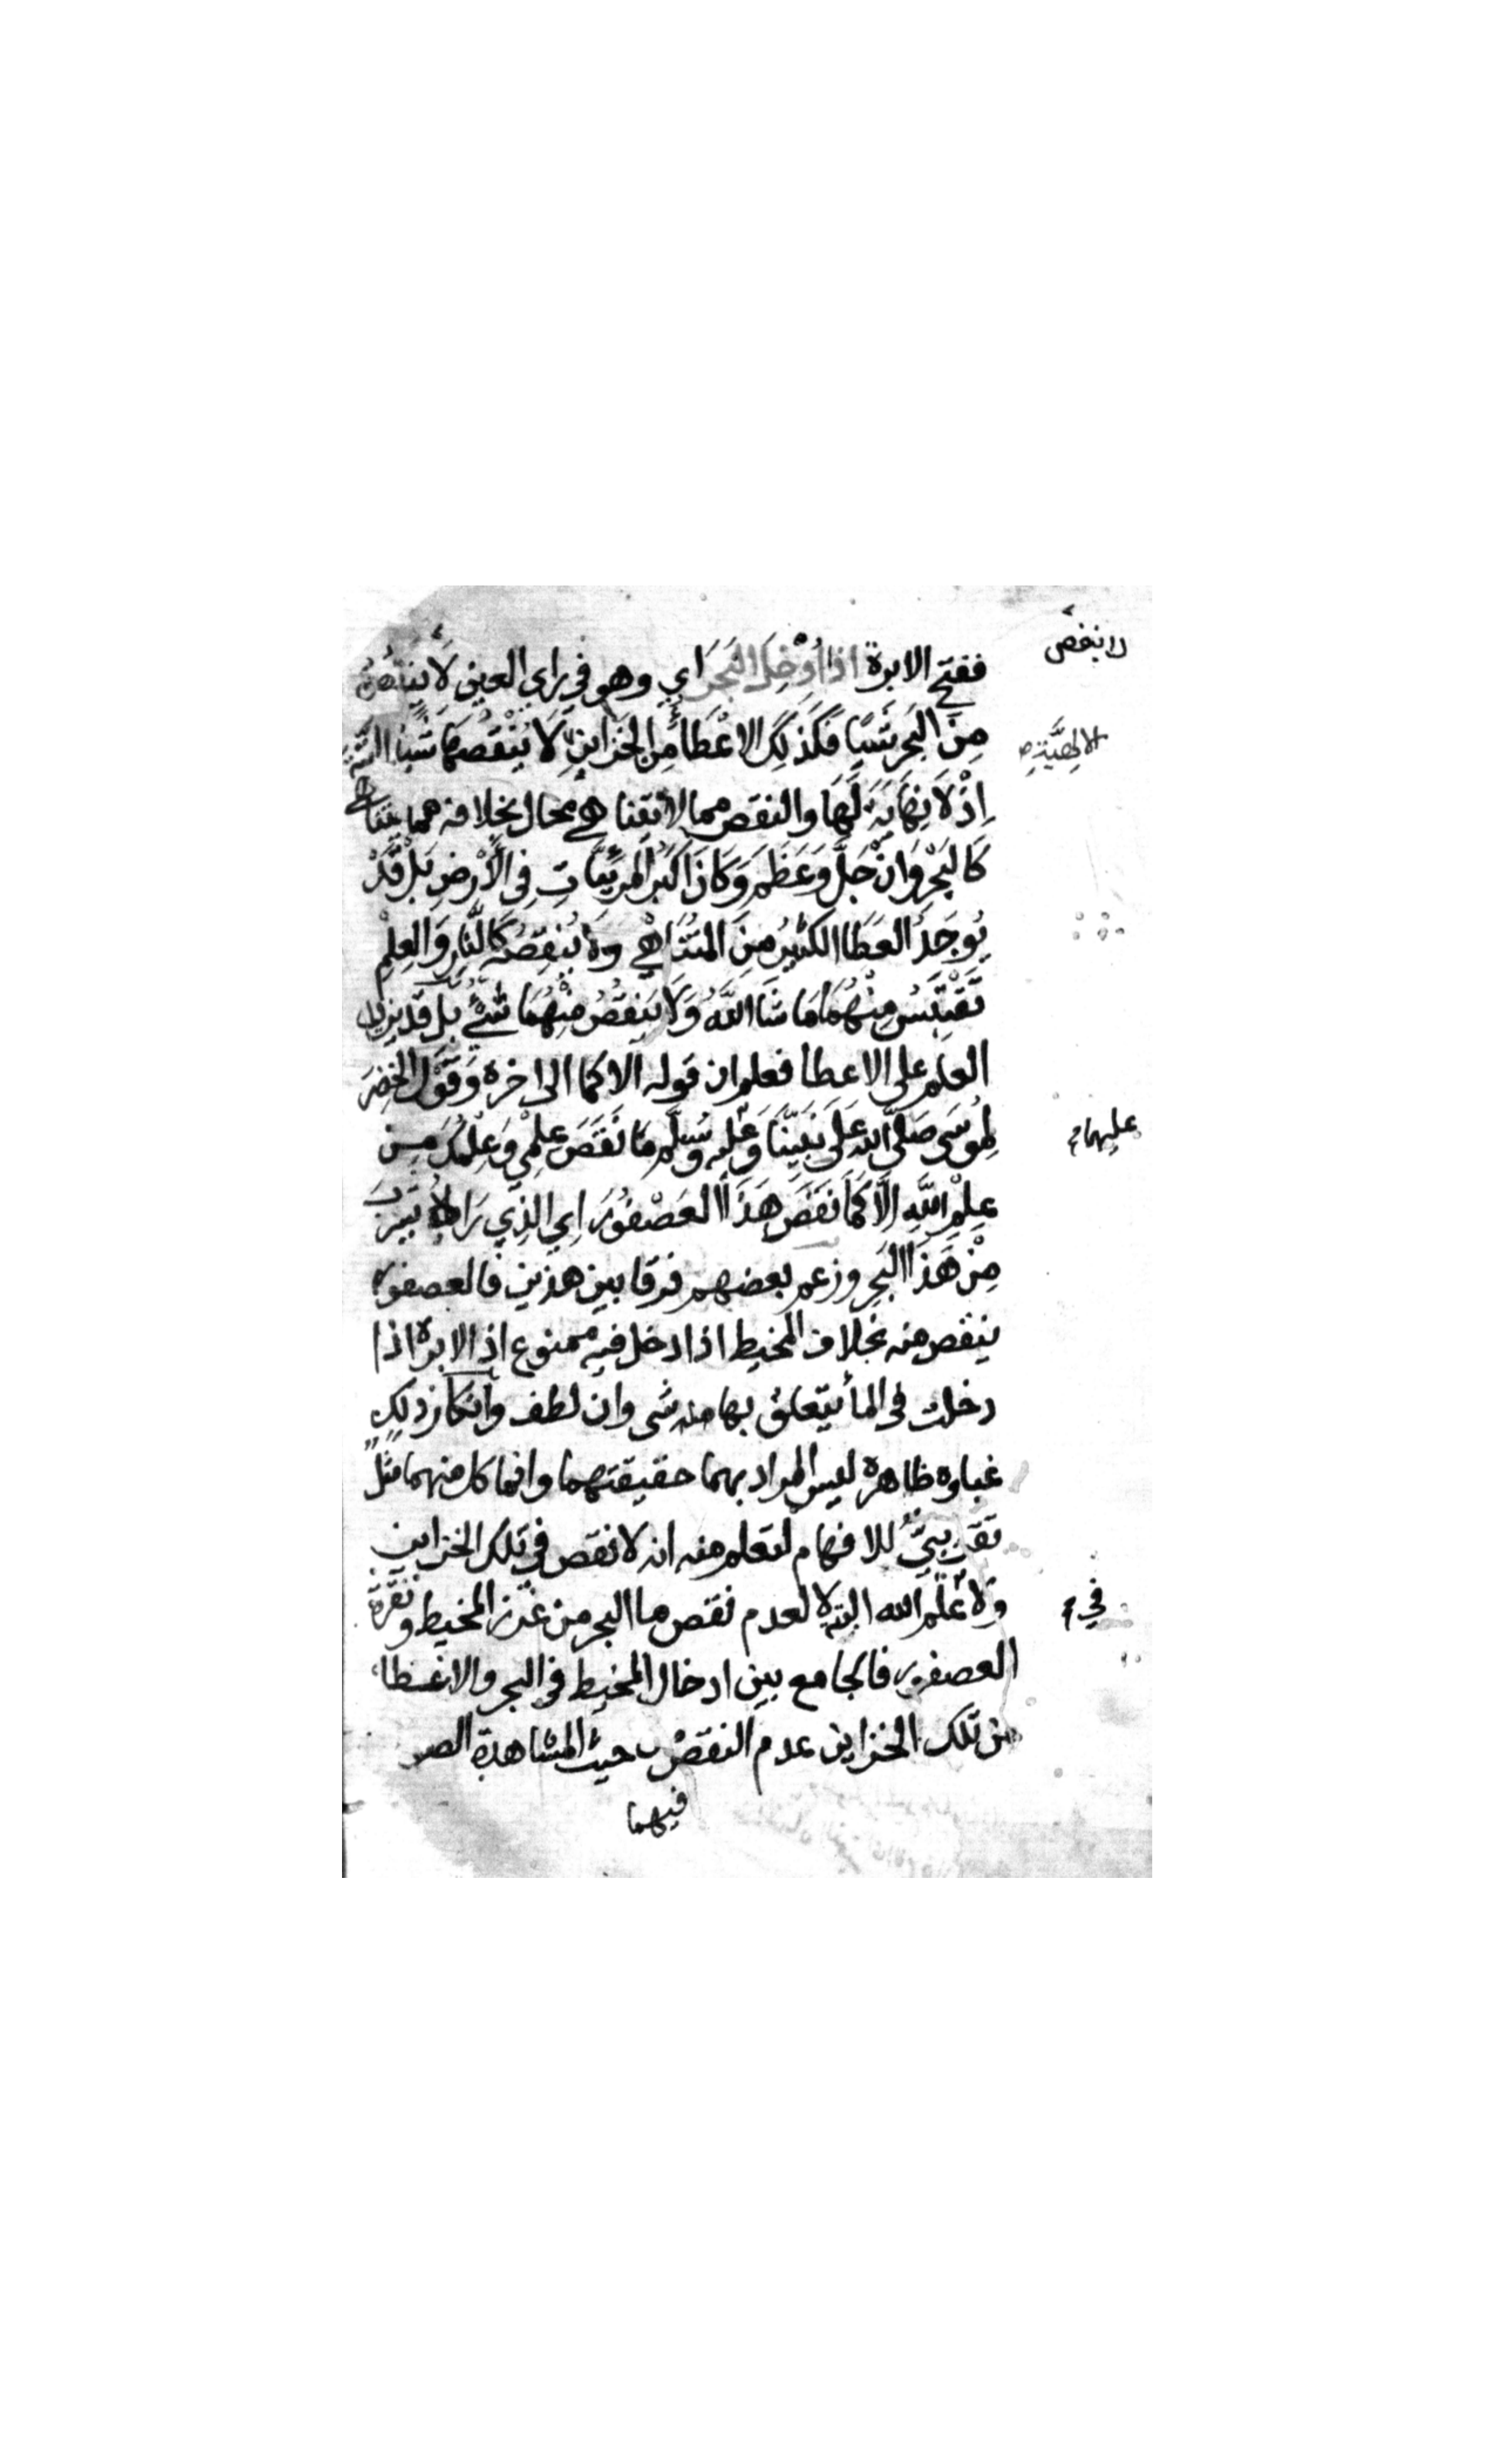 لا ينقص
ففتح الابرة اذا أُدْخِلَ البَحْرَ اي وهو في راي العين لَا يَنْقُصُ
مِنَ البَحرِ شَيْئًا فَكَذلِكَ الاعْطَأُ مِنَ الخَزَاينِ لَا يَنْقُصُهَا شَيْئًا البَتَّةَ
الالهيّة
اِذْ لَا نِهَايَةَ لَهَا والنقص مما لا يتناهي محال بخلافه مما يتناهي
كَالبَحْرِ وَاِنْ جَلَّ وَعَظُمَ وَكَانَ اَكْبَرَ المرئيَّاتِ فِي الْاَرْضِ بَلْ قَدْ
يُوجَدُ العَطَا الكثيرُ مِنَ المُتَنَاهِي وَلَا يُنْقِصُهُ كَالنَّارِ وَالعِلمِ
تَقْتَبِسُ مِنْهُمَا مَا شَا اللَّهُ وَلَا يَنقُصُ مِنْهُمَا شَئٌ بَل قَد يزيد
العلم على الاعطا فعلم ان قوله الا كما الى اخره وَقَوْلَ الخَضِرِ
لِمُوسَى صَلَّى اللَّه عَلَى نَبِيِّنَا وَعَلَيْهِ وَسَلَّمَ مَا نَقَصَ عِلْمِي وَعِلْمُكَ مِن
عليهما م
عِلْمِ اللَّهِ اِلَّا كَمَا نَقَصَ هَذَا العُصْفُورُ اي الَّذِي رَاَيَاهُ يَشْرَبُ
مِنْ هَذَا البَحرِ وزعم بعضهم فرقا بين هذين فالعصفور
ينقص منه بخلاف المخيط اذا دخل فيه ممنوع اذ الابرة اذا
دخلت في المأ يتعلق بها منه شى وان لطف وانكار ذلك
غباوه ظاهرة ليس المراد بهما حقيقتهما وانما كل منهما مثل
تقريبيٌّ للافهام لتعلم منه انه لا نقص في تلك الخزاين
وَلَا عِلْم الله البتة لعدم نقص ما البحر من غرز المخيط ونقرة
في م
العصفور فالجامع بين ادخال المخيط في البحر والاعطا
من تلك الخزاين عدم النقص حيث المشاهدة
فيهما